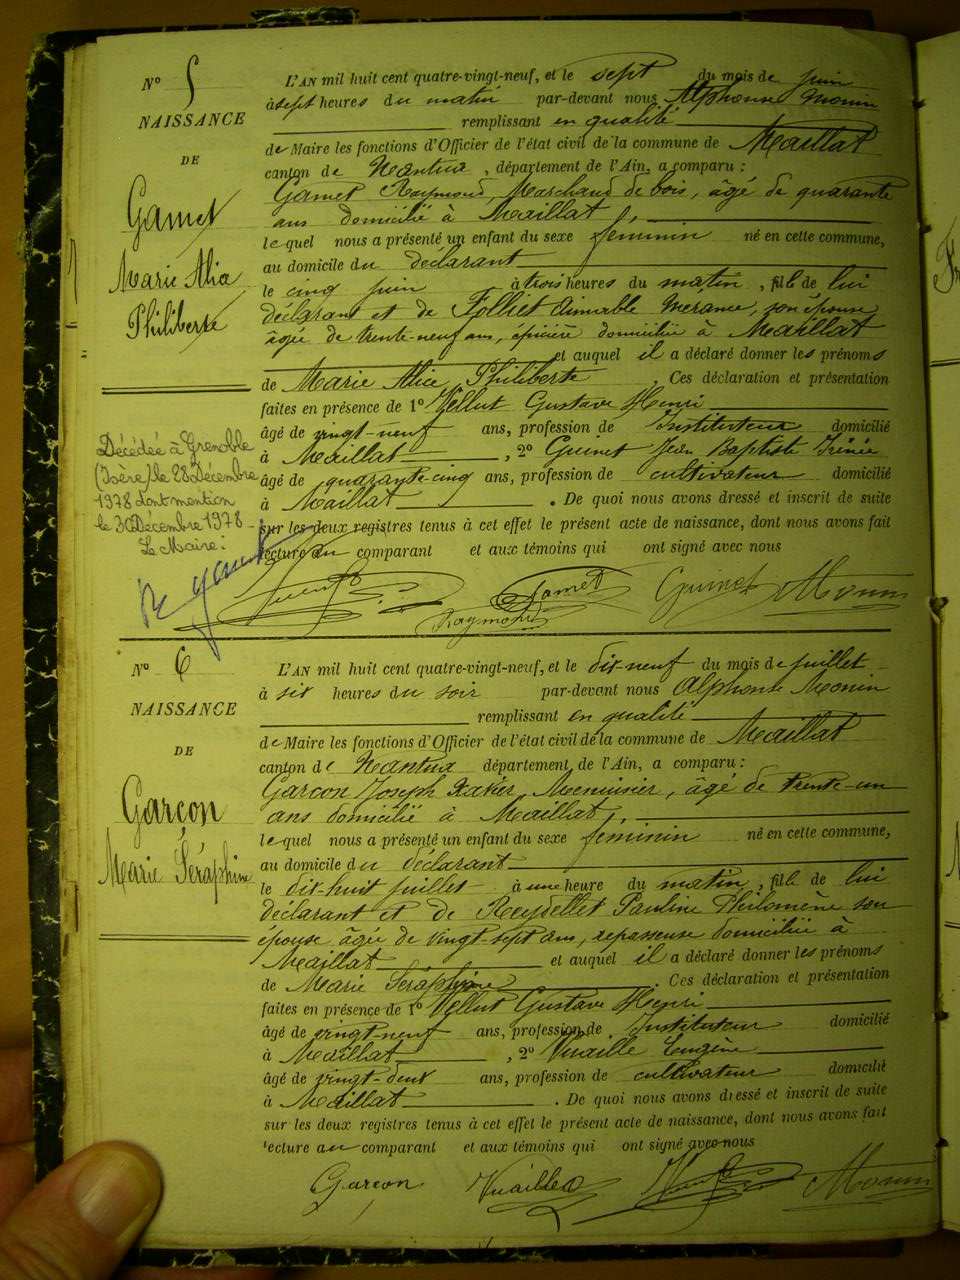 N° 5
NAISSANCE
DE
Gamet
Marie Alice
Philiberte
Décédée à Grenoble
(Isère) le 28 Décembre
1978 dont mention
le 30 Décembre 1978
Le Maire:
L'AN mil huit cent quatre-vingt-neuf, et le sept du mois de juin
à sept heures du matin par-devant nous Alphonse Monin
remplissant en qualité
de Maire les fonctions d'Officier de l'état civil de la commune de Maillat
canton de Nantua, département de l'Ain, a comparu :
Gamet Raymond, Marchand de bois, âgé de quarante
ans domicilié à Maillat,
lequel nous a présenté un enfant du sexe féminin né en cette commune,
au domicile du déclarant
le cinq juin à trois heures du matin, fille de lui
déclarant et de Folliet Aimable Merance, son épouse
âgée de trente-neuf ans, épicière domiciliée à Maillat
et auquel il a déclaré donner les prénoms
de Marie Alice Philiberte. Ces déclaration et présentation
faites en présence de 1° Vellut Gustave Henri
âgé de vingt-neuf ans, profession de Instituteur domicilié
à Maillat, 2° Guinet Jean Baptiste Irénée
âgé de quarante-cinq ans, profession de cultivateur domicilié
à Maillat. De quoi nous avons dressé et inscrit de suite
sur les deux registres tenus à cet effet le présent acte de naissance, dont nous avons fait
lecture au comparant et aux témoins qui ont signé avec nous
Gamet Guinet Monin
Raymond
N° 6
NAISSANCE
DE
Garcon
Marie Séraphine
L'AN mil huit cent quatre-vingt-neuf, et le dix-neuf du mois de juillet
à six heures du soir par-devant nous Alphonse Monin
remplissant en qualité
de Maire les fonctions d'Officier de l'état civil de la commune de Maillat
canton de Nantua département de l'Ain, a comparu :
Garcon Joseph Xavier Menuisier, âgé de trente-un
ans domicilié à Maillat,
lequel nous a présenté un enfant du sexe féminin né en cette commune,
au domicile du déclarant
le dix-huit juillet à une heure du matin, fille de lui
déclarant et de Reydellet Pauline Philomène son
épouse âgée de vingt-sept ans, repasseuse domiciliée à
Maillat et auquel il a déclaré donner les prénoms
de Marie Séraphine. Ces déclaration et présentation
faites en présence de 1° Vellut Gustave Henri
âgé de vingt-neuf ans, profession de Instituteur domicilié
à Maillat, 2° Vuaille Eugène
âgé de vingt-deux ans, profession de cultivateur domicilié
à Maillat. De quoi nous avons dressé et inscrit de suite
sur les deux registres tenus à cet effet le présent acte de naissance, dont nous avons fait
lecture au comparant et aux témoins qui ont signé avec nous
Garcon Vuaille Monin